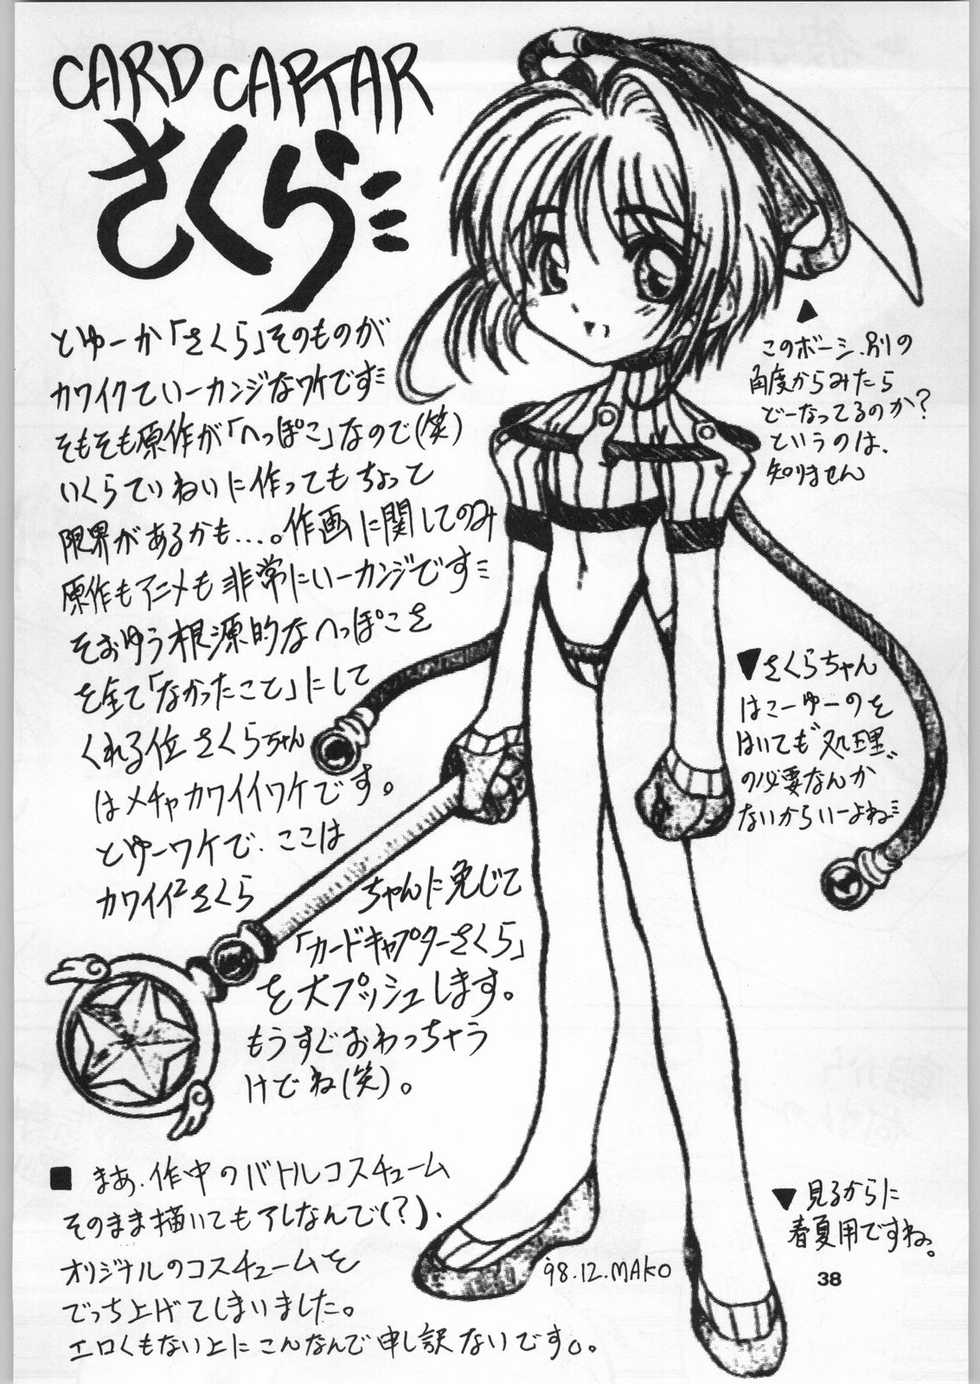 CARD CAPTAR
さくら
とゆーか「さくら」そのものが
カワイクていーカンジなワケです
そもそも原作が「へっぽこ」なので(笑)
いくらていねいに作ってもちょっと
限界があるかも…。作画に関してのみ
原作もアニメも非常にいーカンジです
そおゆう根源的なへっぽこを
を全て「なかったこと」にして
くれる位さくらちゃん
はメチャカワイイワケです。
とゆーワケで、ここは
カワイイ²さくら
ちゃんに免じて
「カードキャプターさくら」
を大プッシュします。
もうすぐおわっちゃう
けどね(笑)。
▲
このボーシ、別の
角度からみたら
どーなってるのか?
というのは、
知りません
■ まあ、作中のバトルコスチューム
そのまま描いてもアレなんで(?)、
オリジナルのコスチュームを
でっち上げてしまいました。
エロくもない上にこんなんで申し訳ないです。
'98.12.MAKO
▼見るからに
春夏用ですね。
38